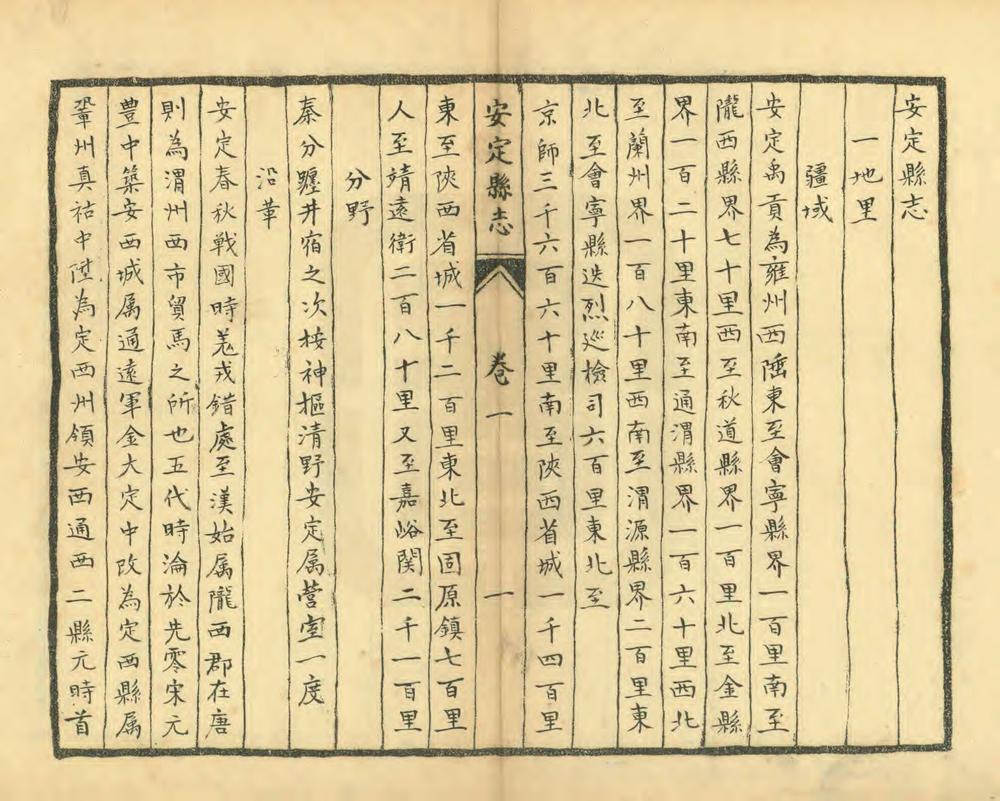 安定縣志
一地里
疆域
安定禹貢為雍州西陲東至會寧縣界一百里南至
隴西縣界七十里西至秋道縣界一百里北至金縣
界一百二十里東南至通渭縣界一百六十里西北
至蘭州界一百八十里西南至渭源縣界二百里東
北至會寧縣迭烈巡檢司六百里東北至
京師三千六百六十里南至陝西省城一千四百里
安定縣志 卷一 一
東至陝西省城一千二百里東北至固原鎮七百里
人至靖遠衛二百八十里又至嘉峪関二千一百里
分野
秦分躔井宿之次按神樞清野安定属營室一度
沿革
安定春秋戰國時羗戎錯處至漢始属隴西郡在唐
則為渭州西市貿馬之所也五代時淪於先零宋元
豊中築安西城属通遠軍金大定中改為定西縣属
鞏州真祐中陞為定西州領安西通西二縣元時首